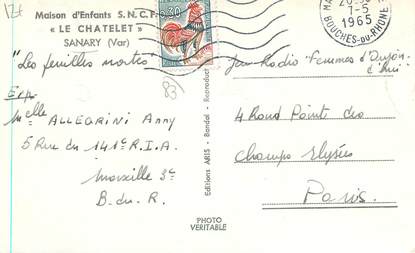 Maison d'Enfants S.N.C.F.
« LE CHATELET »
SANARY (Var)
"Les feuilles mortes"
Exp.
Melle ALLEGRINI Anny
5 Rue du 141e R.I.A.
Marseille 3e
B. du R.
0,30
7-5
1965
BOUCHES-DU-RHONE
83
Editions ARIS - Bandol - Reproduct
PHOTO
VERITABLE
Jeu Radio Femmes d'
4 Rond Point des
Champs Elysées
Paris.